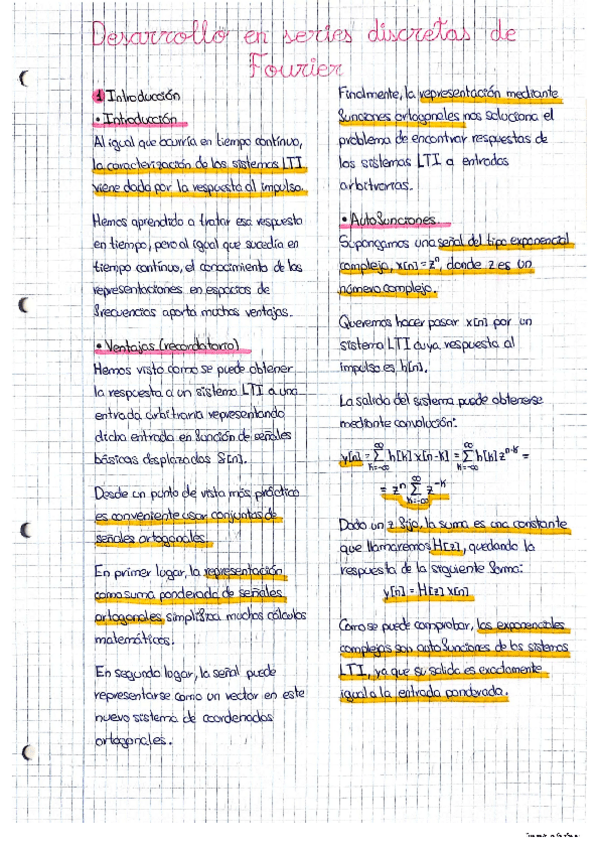 Desarrollo en series discretas de
Fourier
1 Introducción
• Introducción
Al igual que ocurría en tiempo continuo,
la caracterización de los sistemas LTI
viene dada por la respuesta al impulso.
Hemos aprendido a tratar esa respuesta
en tiempo, pero al igual que sucedía en
tiempo continuo, el conocimiento de las
representaciones en espacios de
frecuencias aporta muchas ventajas.
• Ventajas (recordatorio)
Hemos visto como se puede obtener
la respuesta a un sistema LTI a una
entrada arbitraria representando
dicha entrada en función de señales
básicas desplazadas δ[n].
Desde un punto de vista más práctico
es conveniente usar conjuntos de
señales ortogonales.
En primer lugar, la representación
como suma ponderada de señales
ortogonales simplifica muchos cálculos
matemáticos.
En segundo lugar, la señal puede
representarse como un vector en este
nuevo sistema de coordenadas
ortogonales.
Finalmente, la representación mediante
funciones ortogonales nos soluciona el
problema de encontrar respuestas de
los sistemas LTI a entradas
arbitrarias.
• Autofunciones.
Supongamos una señal del tipo exponencial
compleja, x[n] = zⁿ, donde z es un
número complejo.
Queremos hacer pasar x[n] por un
sistema LTI cuya respuesta al
impulso es h[n].
La salida del sistema puede obtenerse
mediante convolución:
y[n] = ∞ Σ k=-∞ h[k] x[n-k] = ∞ Σ k=-∞ h[k] z^n-k =
= zⁿ ∞ Σ k=-∞ z^-k
Dado un z fijo, la suma es una constante
que llamaremos H[z], quedando la
respuesta de la siguiente forma:
y[n] = H[z] x[n]
Como se puede comprobar, las exponenciales
complejas son autofunciones de los sistemas
LTI, ya que su salida es exactamente
igual a la entrada ponderada.